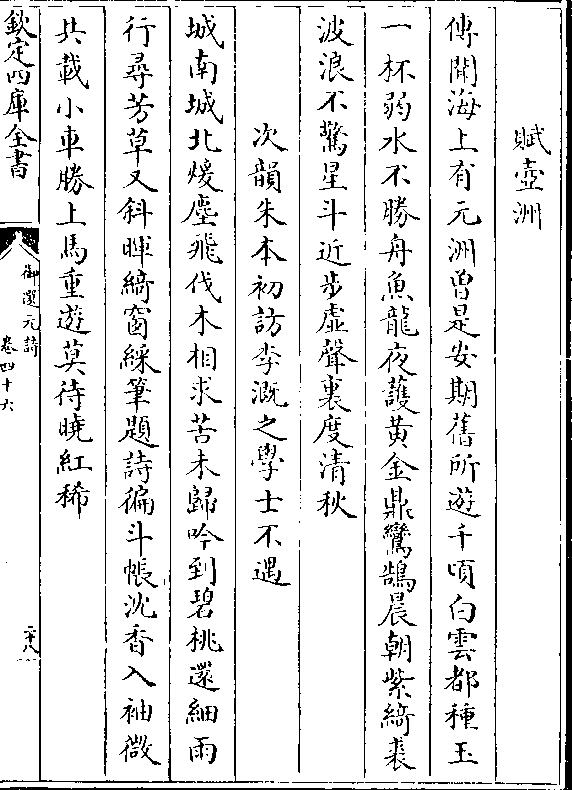 賦壺洲
傳聞海上有元洲曽是安期舊所遊千頃白雲都種玉
一杯弱水不勝舟魚龍夜護黃金鼎鸞鵠晨朝紫綺裘
波浪不驚星斗近步虛聲裏度清秋
次韻朱本初訪李溉之學士不遇
城南城北煖塵飛伐木相求苦未歸吟到碧桃還細雨
行尋芳草又斜暉綺窗綵筆題詩徧斗帳沈香入袖微
共載小車勝上馬重遊莫待曉紅稀
欽定四庫全書
御選元詩
卷四十六
二十八